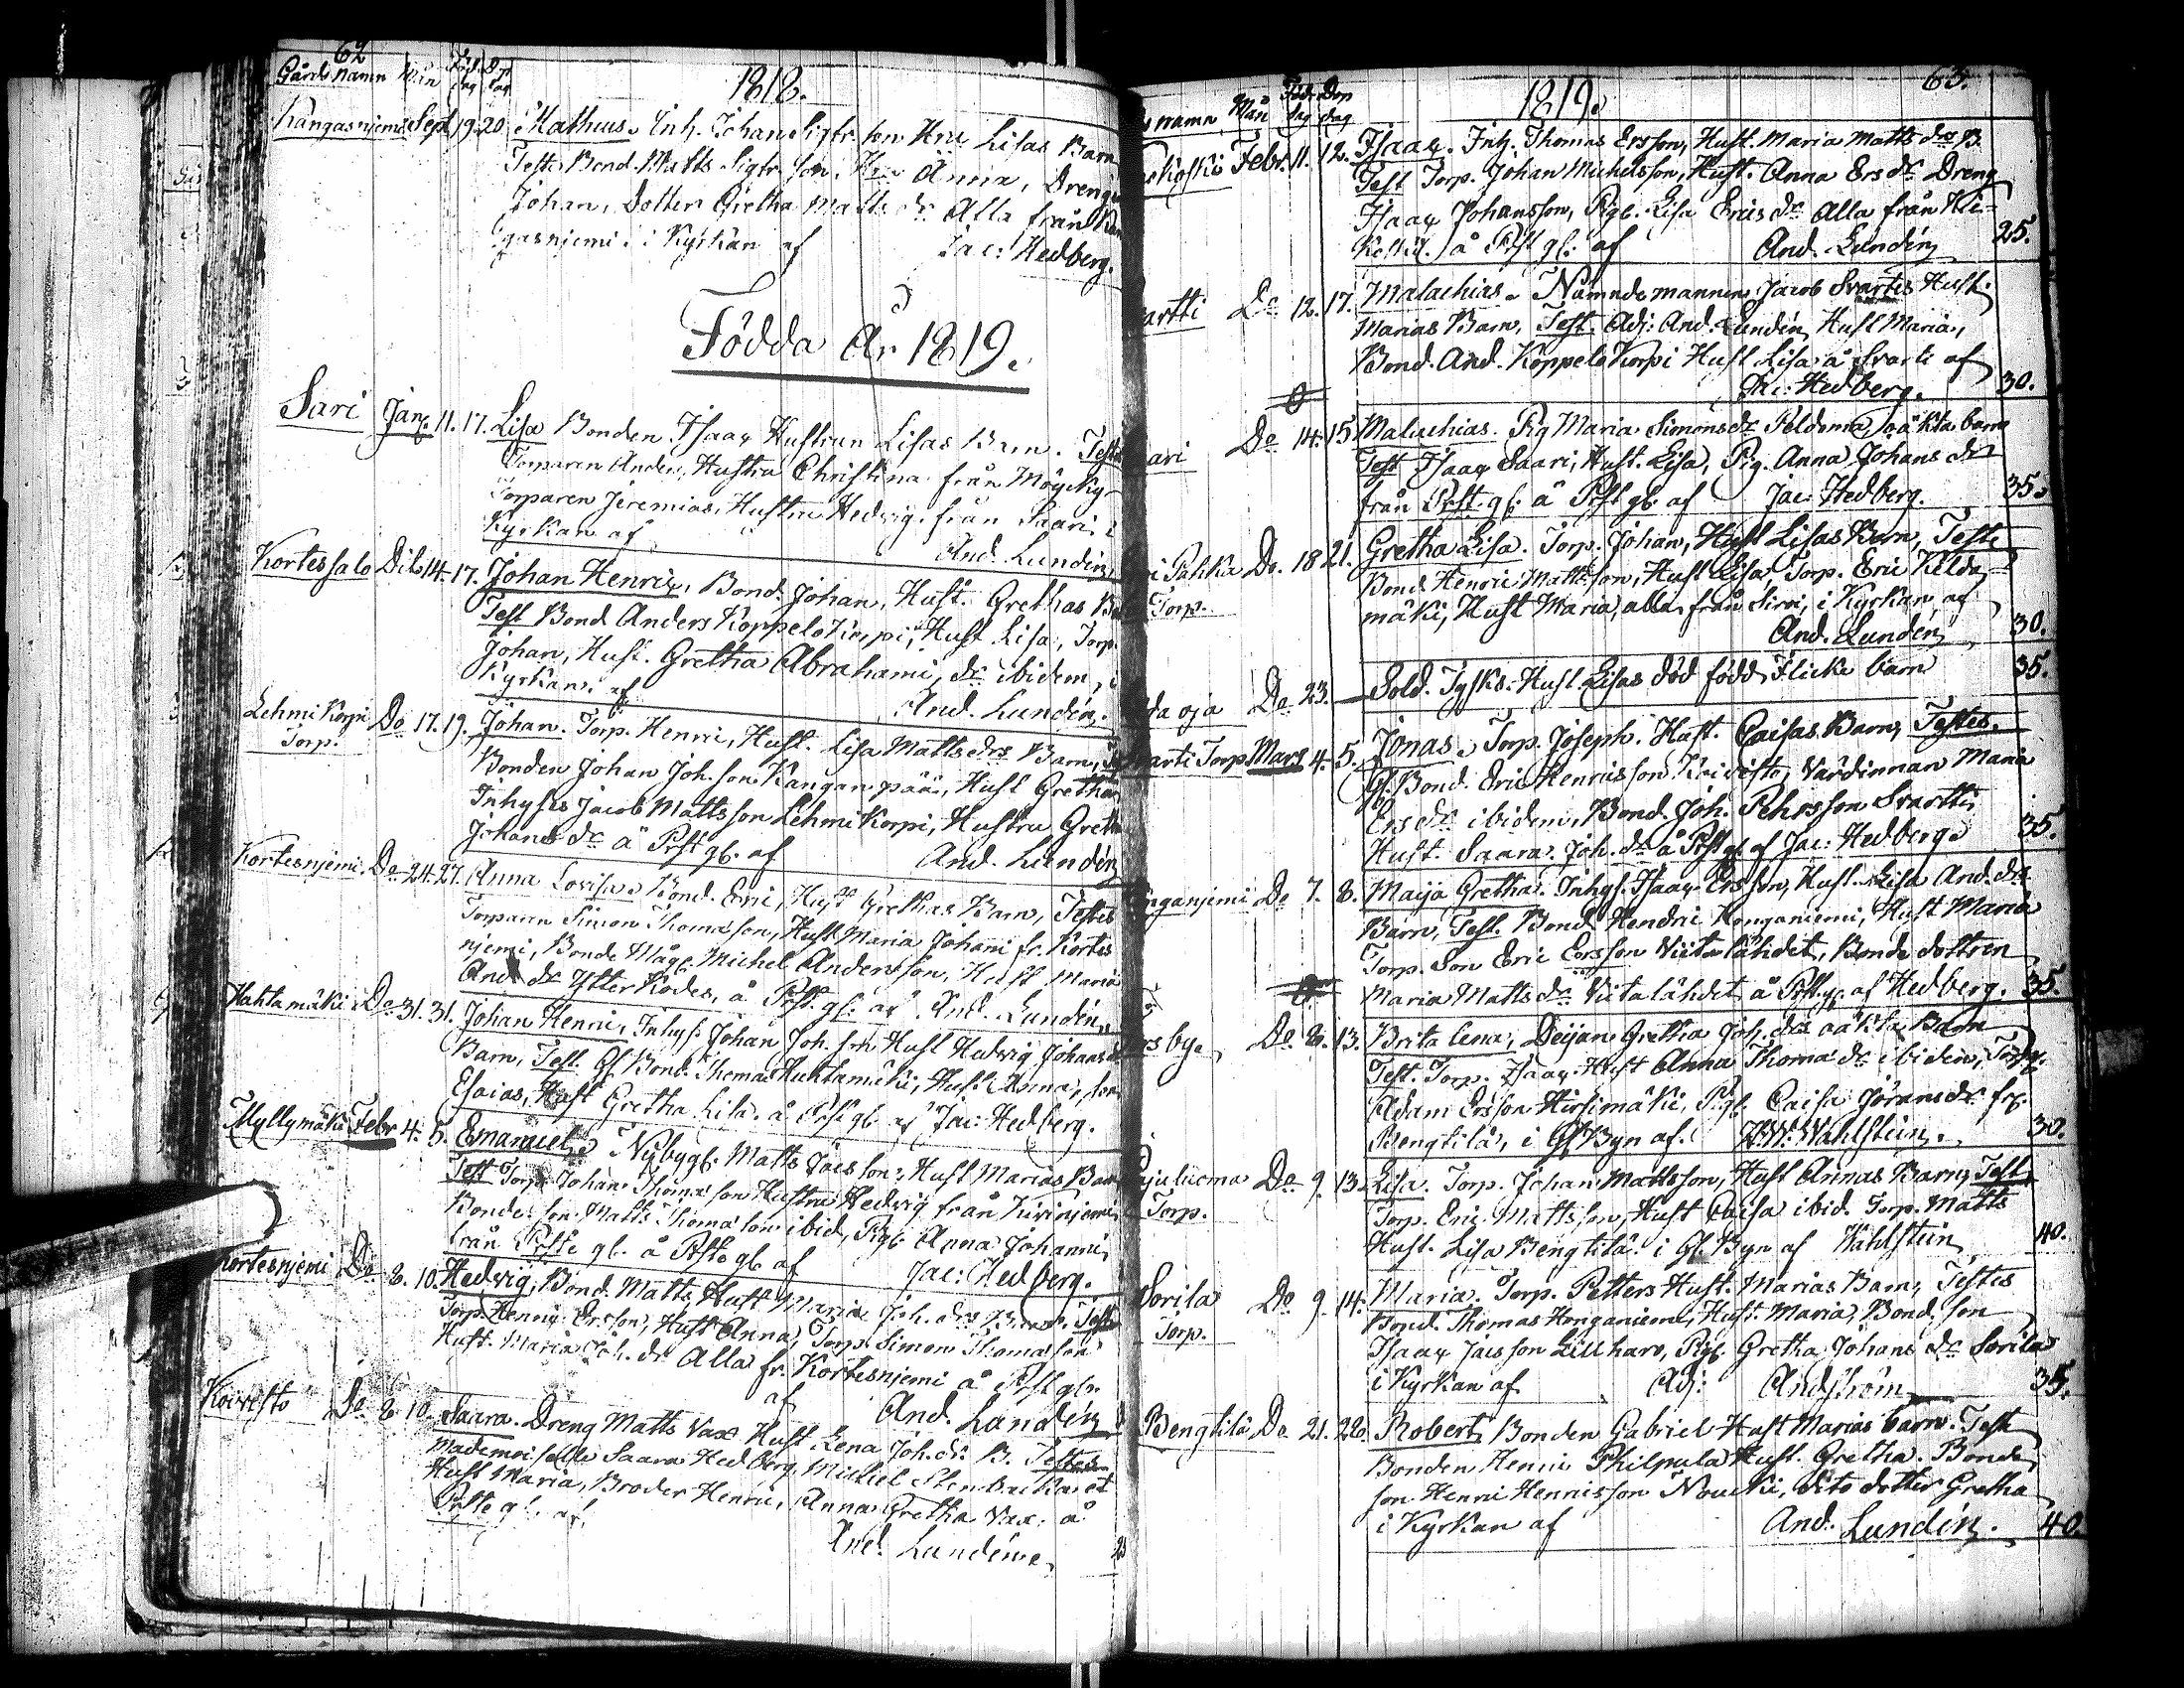 62
Gårds namn Mån Föd. dag Dop dag 1818.
Kangasnjemi Sept. 19. 20. Mathias. Inh. Johan Sigfr. son Hru Lisas Barn
Test. Bond. Matts Sigfr. son, Hru Anna, Drengen
Johan, Dotter Gretha Matts dr Alla från Kan
gasnjemi i Kyrkan af Jac: Hedberg.
Födda År 1819.
Sari Jan. 11. 17. Lisa Bonden Isaax Hustrun Lisas Barn. Testes
Torparen Anders, Hustru Christina från Möyrky
Torparen Jeremias, Hustru Hedvig från Saari i
Kyrkan af And. Lundén,
Kortessalo Dito 14. 17. Johan Henric, Bond. Johan, Hust. Grethas
Test Bond Anders Koppelokorpi, Hust Lisa, Torp.
Johan, Hust. Gretha Abrahami, dr ibidem, i
Kyrkan. af And. Lundén.
Lehmi Korpi Do 17. 19. Johan. Torp. Henric, Hust. Lisa Matts drs Barn,
Torp.
Bonden Johan Joh. son Kangan pää, Hust Gretha
Inhyses Jacob Mattsson Lehmikorpi, Hustru Greth
Johans dr å Prst gb. af And. Lundén
Kortesnjemi. Do 24. 27. Anna Lovisa. Bond. Eric, Hust Grethas Barn, Testes
Torparen Simon Thomasson, Hust Maria Johani fr. Kortes
njemi, Bonde Måge Michel Andersson, Hust Maria
And dr Ytter Kodes, å Prst. gb. af And. Lundén,
Hahtamäki Do 31. 31. Johan Henric, Inhys: Johan Joh. son Hust Hedvig Johans d
Barn, Test. Gl Bond Thomas Huhtamäki, Hust Anna, son
Esaias, Hust Gretha Lisa. å Prst gb af Jac: Hedberg.
Myllymäki Febr. 4. 5. Emanuel. Nybygg. Matts Jacsson, Hust Marias Barn
Test Torp. Johan Thomasson Hustru Hedvig från
Bonde son Matts Thomasson ibid, Pig. Anna Johanni
från Prste gb. å Prste gb af Jac: Hedberg.
Kortesnjemi Do 8. 10. Hedvig, Bond. Matts, Hust Maria Joh. drs Barn. Teste
Torp. Henric Ersson, Hust Anna, Torp. Simon Thomasson
Hust. Maria Joh. dr Alla fr. Kortesnjemi å Prst gb.
af And. Lundén
Koivisto Do 8. 10. Saara. Dreng Matts Vax Hust Lena Joh. dr B. Testes
Mademoiselle Saara Hedberg, Michel et
Hust Maria, Broder Henric, Anna Gretha Vax. å
Prste gb. af.
And. Lundén
63.
namn Mån Föd. dag Dop dag 1819.
Febr. 11. 12. Isaax. Inh. Thomas Ersson, Hust. Maria Matts drs B.
Test Torp. Johan Michelsson, Hust. Anna Ers dr Dreng
Isaax Johansson, Pig. Lisa Erics dr Alla från
å Prst gb. af And. Lundén 25.
artti Do 12. 17. Malachias. Nämndemannen Jacob Svartis Hust.
Marias Barn, Test. Adj: And. Lundén, Hust Maria,
Bond. And. Koppelo Korpi Hust Lisa å Svarti af
Jac: Hedberg. 30.
ari Do 14. 15. Malachias. Pig Maria Simons dr Peldoma, oäkta barn
Test Isaax Saari, Hust. Lisa, Pig. Anna Johans dr
från Prst. gb. å Prst gb. af Jac: Hedberg. 35.
Pahka Do. 18 21. Gretha Lisa. Torp. Johan, Hust Lisas Barn, Teste
Torp.
Bond. Henric Mattsson, Hust Lisa, Torp. Eric Kelda
mäki, Hust Maria, alla från Sirvi, i Kyrkan, af
And. Lundén 30.
oja Do 23. — Sold. Tysks Hust. Lisas död född Flicke barn 35.
arti Torp. Mars 4. 5. Jonas. Torp. Joseph. Hust. Caisas Barn, Testes.
Gl. Bond. Eric Henricsson Koivisto, Värdinnan Maria
Ers dr ibidem, Bond. Joh. Pehrsson Svartti
Hust. Saara. Joh. dr å Prst gb. af Jac: Hedberg. 35.
nganjemi Do 7. 8. Maija Gretha. Inhys. Isaax Ersson, Hust. Lisa And. drs
Barn, Test. Bond. Hendric Honganiemi, Hust Maria
Torp. Son Eric Ersson Viitalähdet, Bonde dottren
Maria Matts dr Viitalähdet å Prst. gb. af Hedberg. 35.
rs by. Do. 8. 13. Brita Lena, Deijan Gretha Joh. drs oäkta Barn
Test. Torp. Isaax Hust Anna Thomæ dr ibidem, Torp.
Adam Ersson Hirsimäki, Pig. Caisa Jörans dr fr.
Bengtilä, i Gl. Byn af. Wahlstein. 30.
juluoma Do 9. 13. Lisa. Torp. Johan Mattsson, Hust Annas Barn, Test
Torp.
Torp. Eric Mattsson, Hust Caisa ibid. Torp. Matts
Hust. Lisa Bengtilä. i Gl. Byn af Wahlstein, 40.
Sorila Do 9. 14. Maria. Torp. Petters Hust. Marias Barn, Testes
Torp.
Bond. Thomas Honganiemi, Hust. Maria, Bond. son
Isaax Jacsson Lillharo, Pig. Gretha Johans dr Sorila
i Kyrkan af Adj: Andström 35.
Bengtilä Do 21. 22. Robert, Bonden Gabriel Hust Marias barn. Test
Bonden Henric Philpula Hust. Gretha. Bonde
son. Henric Henricsson Noucki, Dito dotter Gretha
i Kyrkan af And. Lundén. 40.